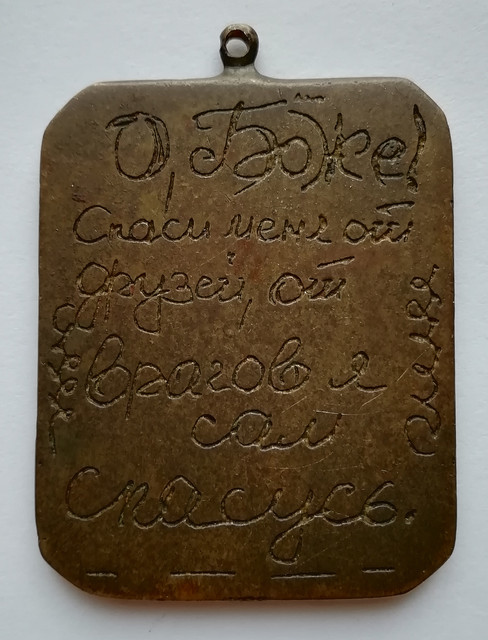 О, Боже!
Спаси меня от
друзей, от
врагов я
сам
спасусь.